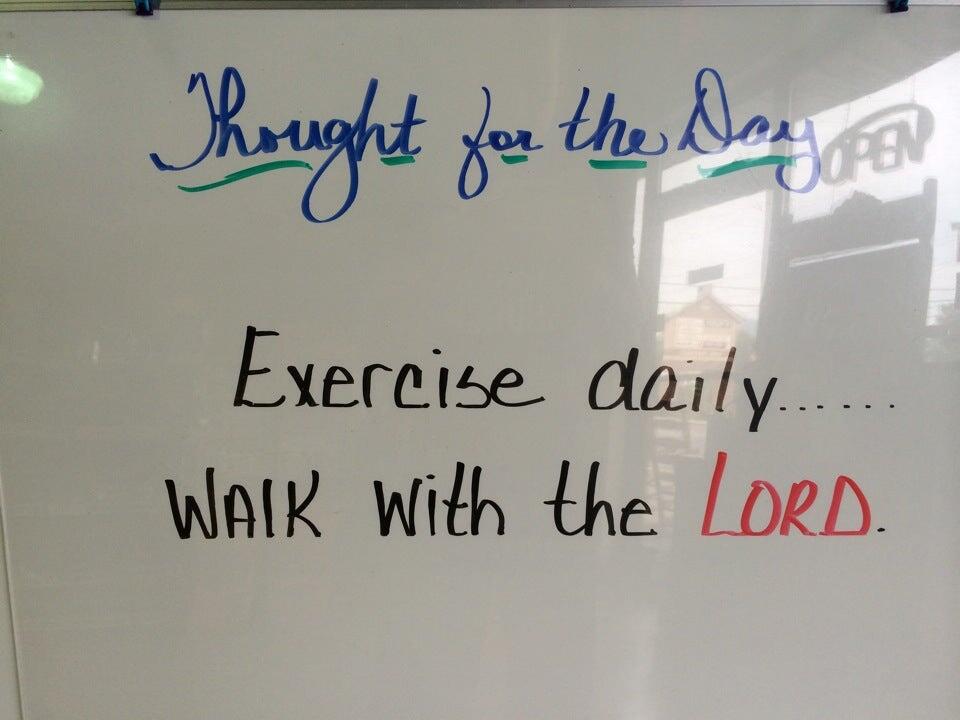 Thought for the Day
OPEN
Exercise daily......
WALK with the LORD.